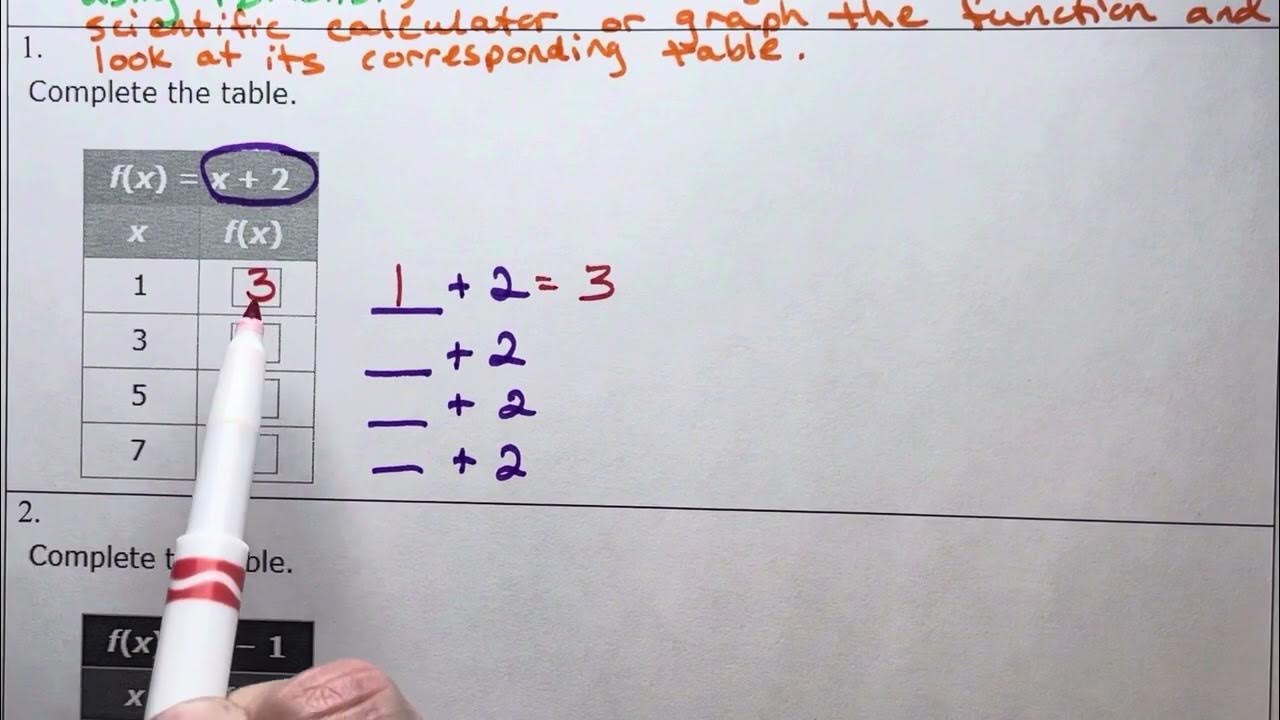 scientific calculater or graph the function and
1.
look at its corresponding table.
Complete the table.
f(x) = x + 2
x f(x)
1 3 1 + 2 = 3
3 __ + 2
5 __ + 2
7 __ + 2
2.
Complete
f(x) - 1
x